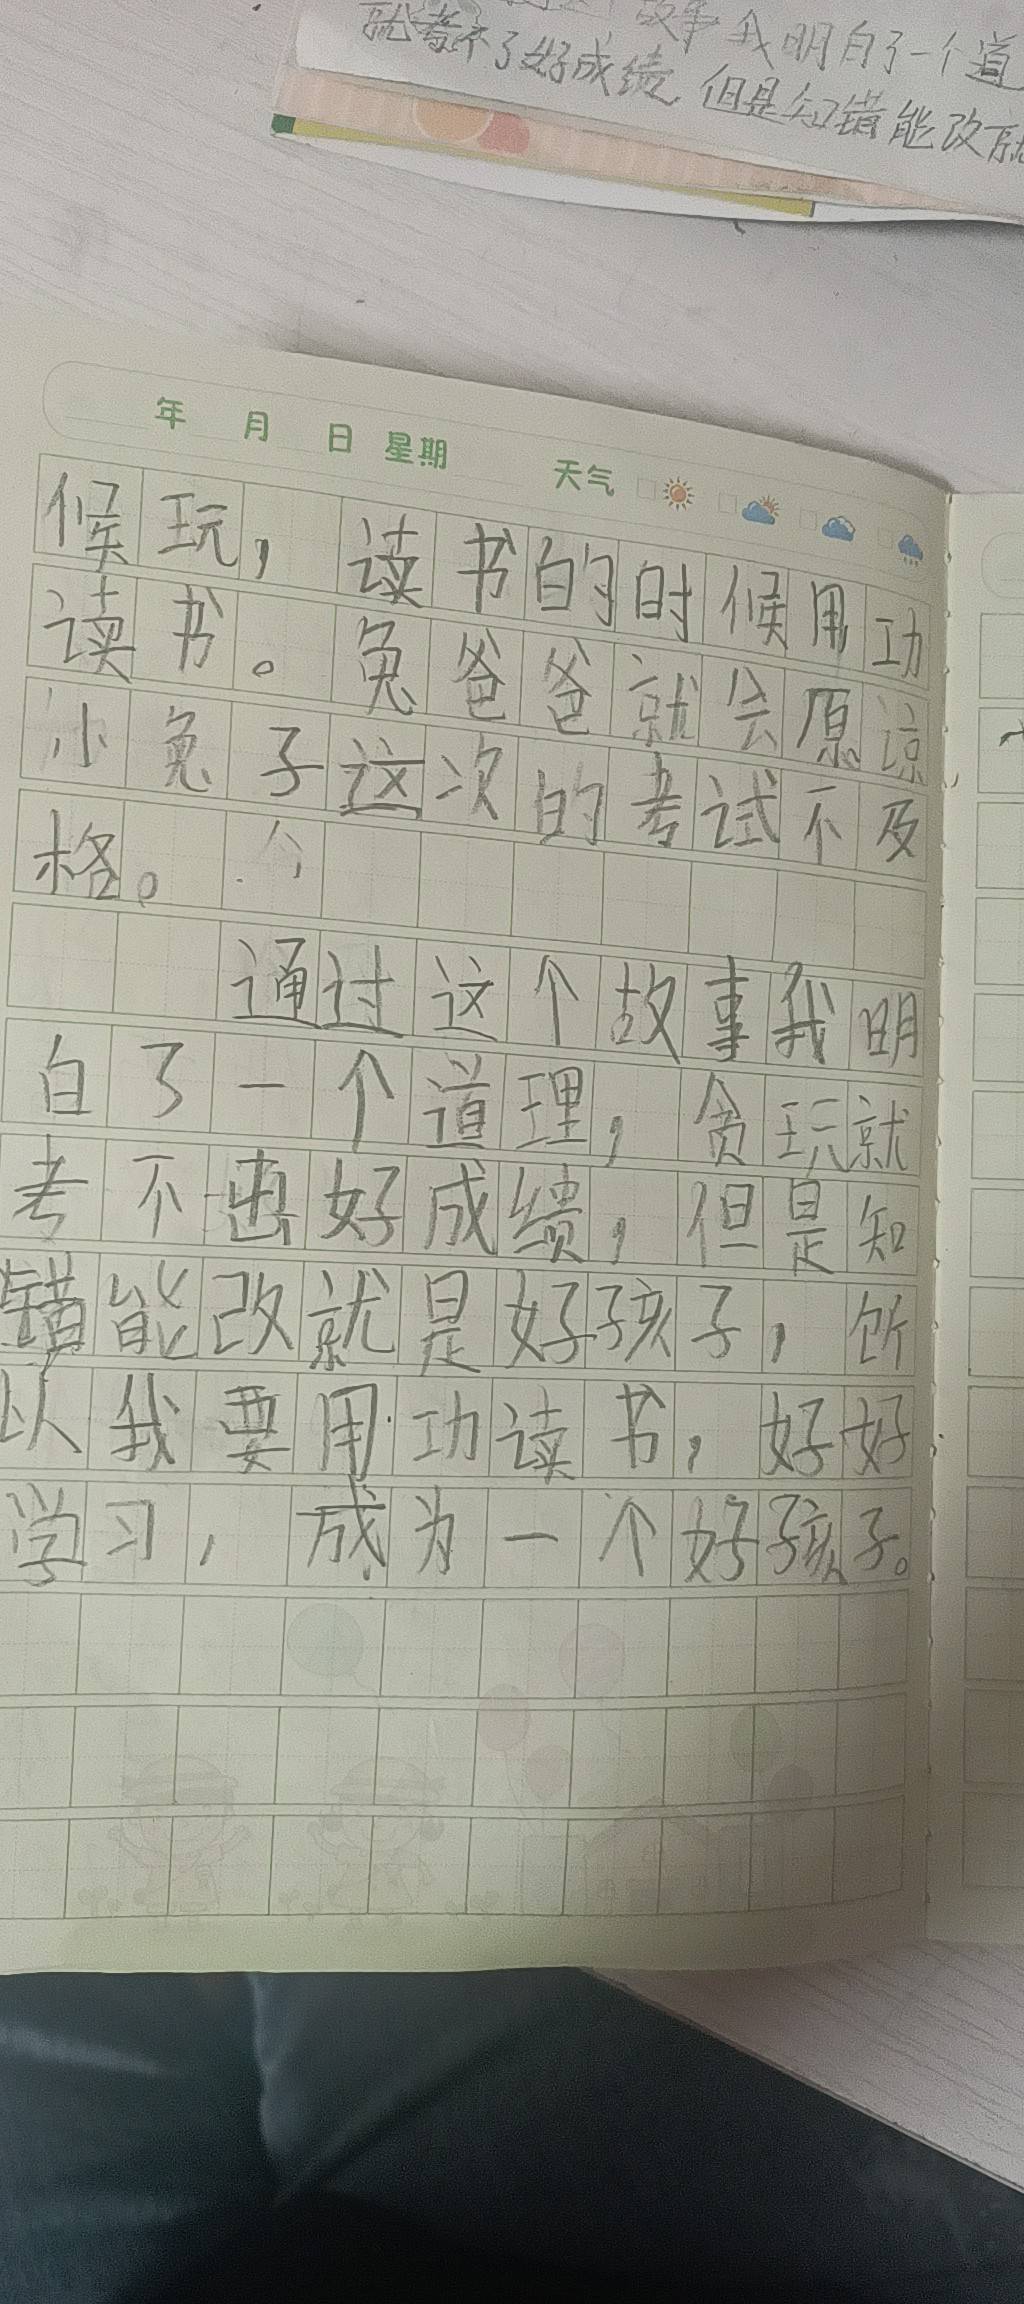 故事我明白了一个道
就考不了好成绩 但是知错能改就
年 月 日 星期 天气
候玩，读书的时候用功
读书。兔爸爸就会原谅
小兔子这次的考试不及
格。
通过这个故事我明
白了一个道理，贪玩就
考不出好成绩，但是知
错能改就是好孩子，所
以我要用功读书，好好
学习，成为一个好孩子。